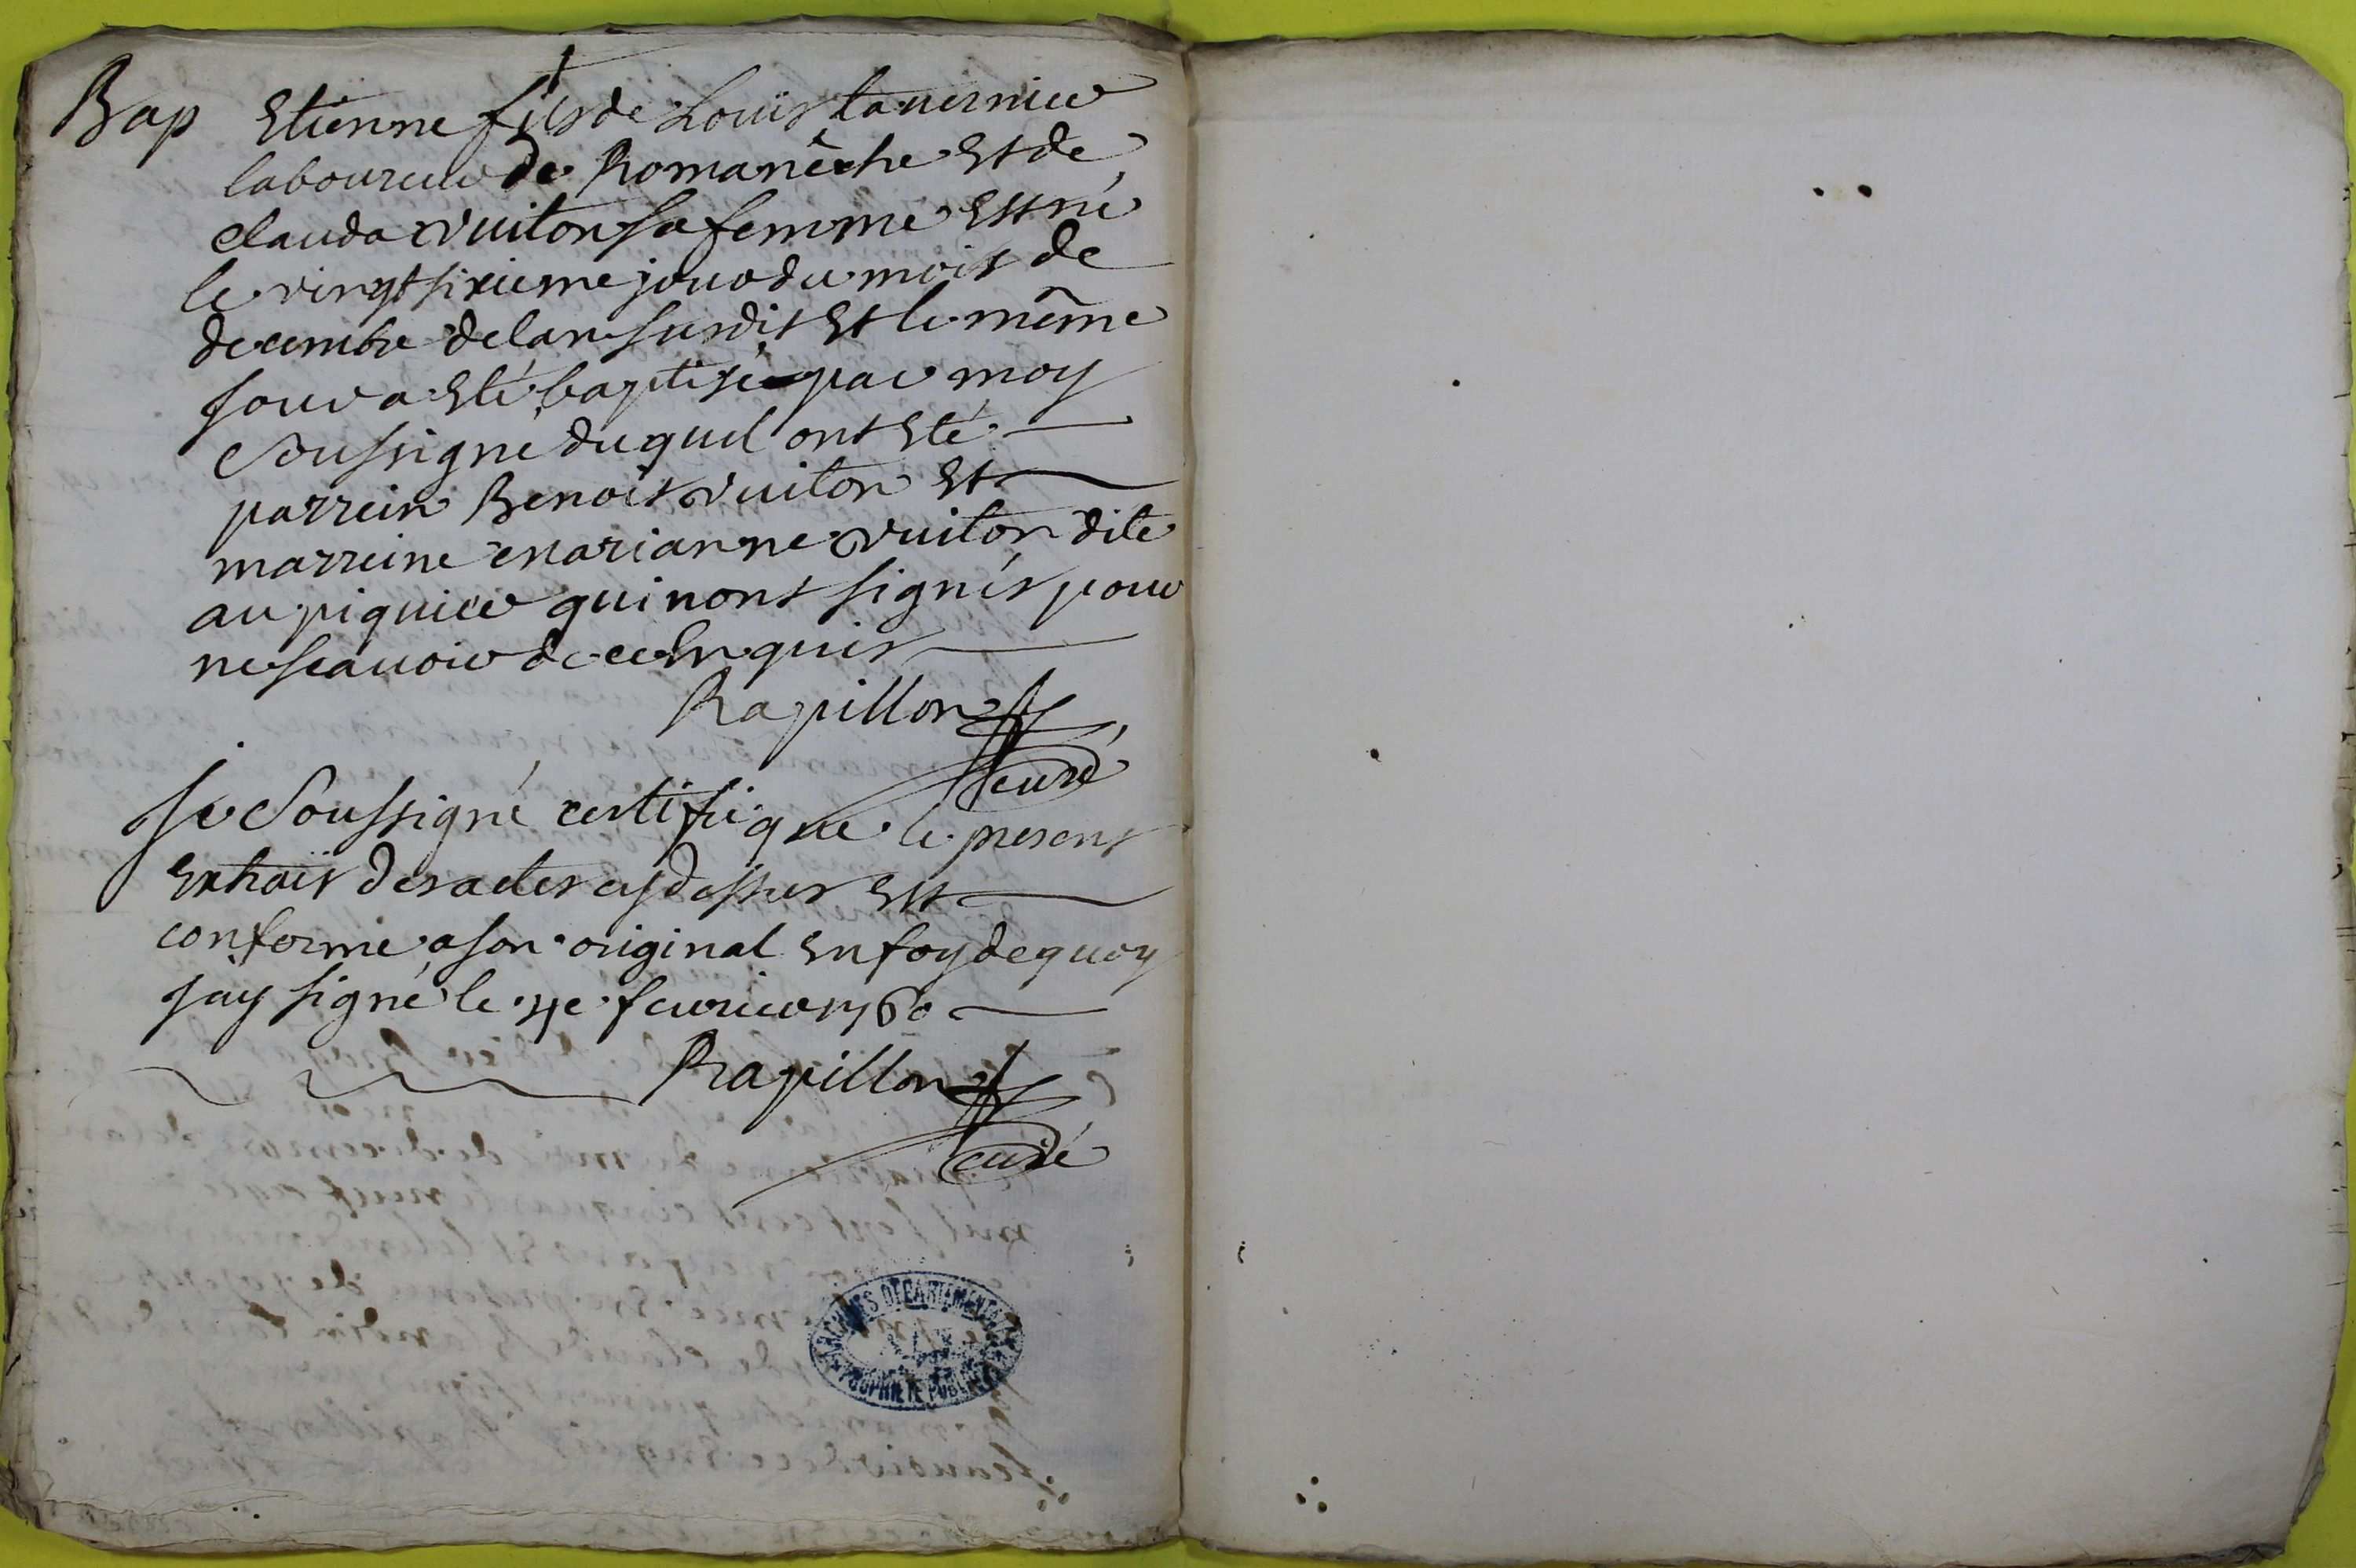 Bap Etienne fils de Louis tavernier
laboureur de Romanêche Et de
clauda vuiton sa femme Est né
le vingt sixieme jour du mois de
decembre de lan susdit Et le même
jour a Eté baptisé par moy
soussigné du quel ont Eté
parrein Benoit vuiton Et
marreine marianne vuiton dite
au piquier qui nont signés pour
ne scauoir de ce Enquis
Rapillon
curé
Je soussigné certifie que le present
Extrait des actes cy dessus Est
conforme a son original En foy de quoy
jay signé le feurier 1760
Rapillon
curé
ARCHIVES DEPARTEMENTALES
PROPRIETE PUBLIQUE